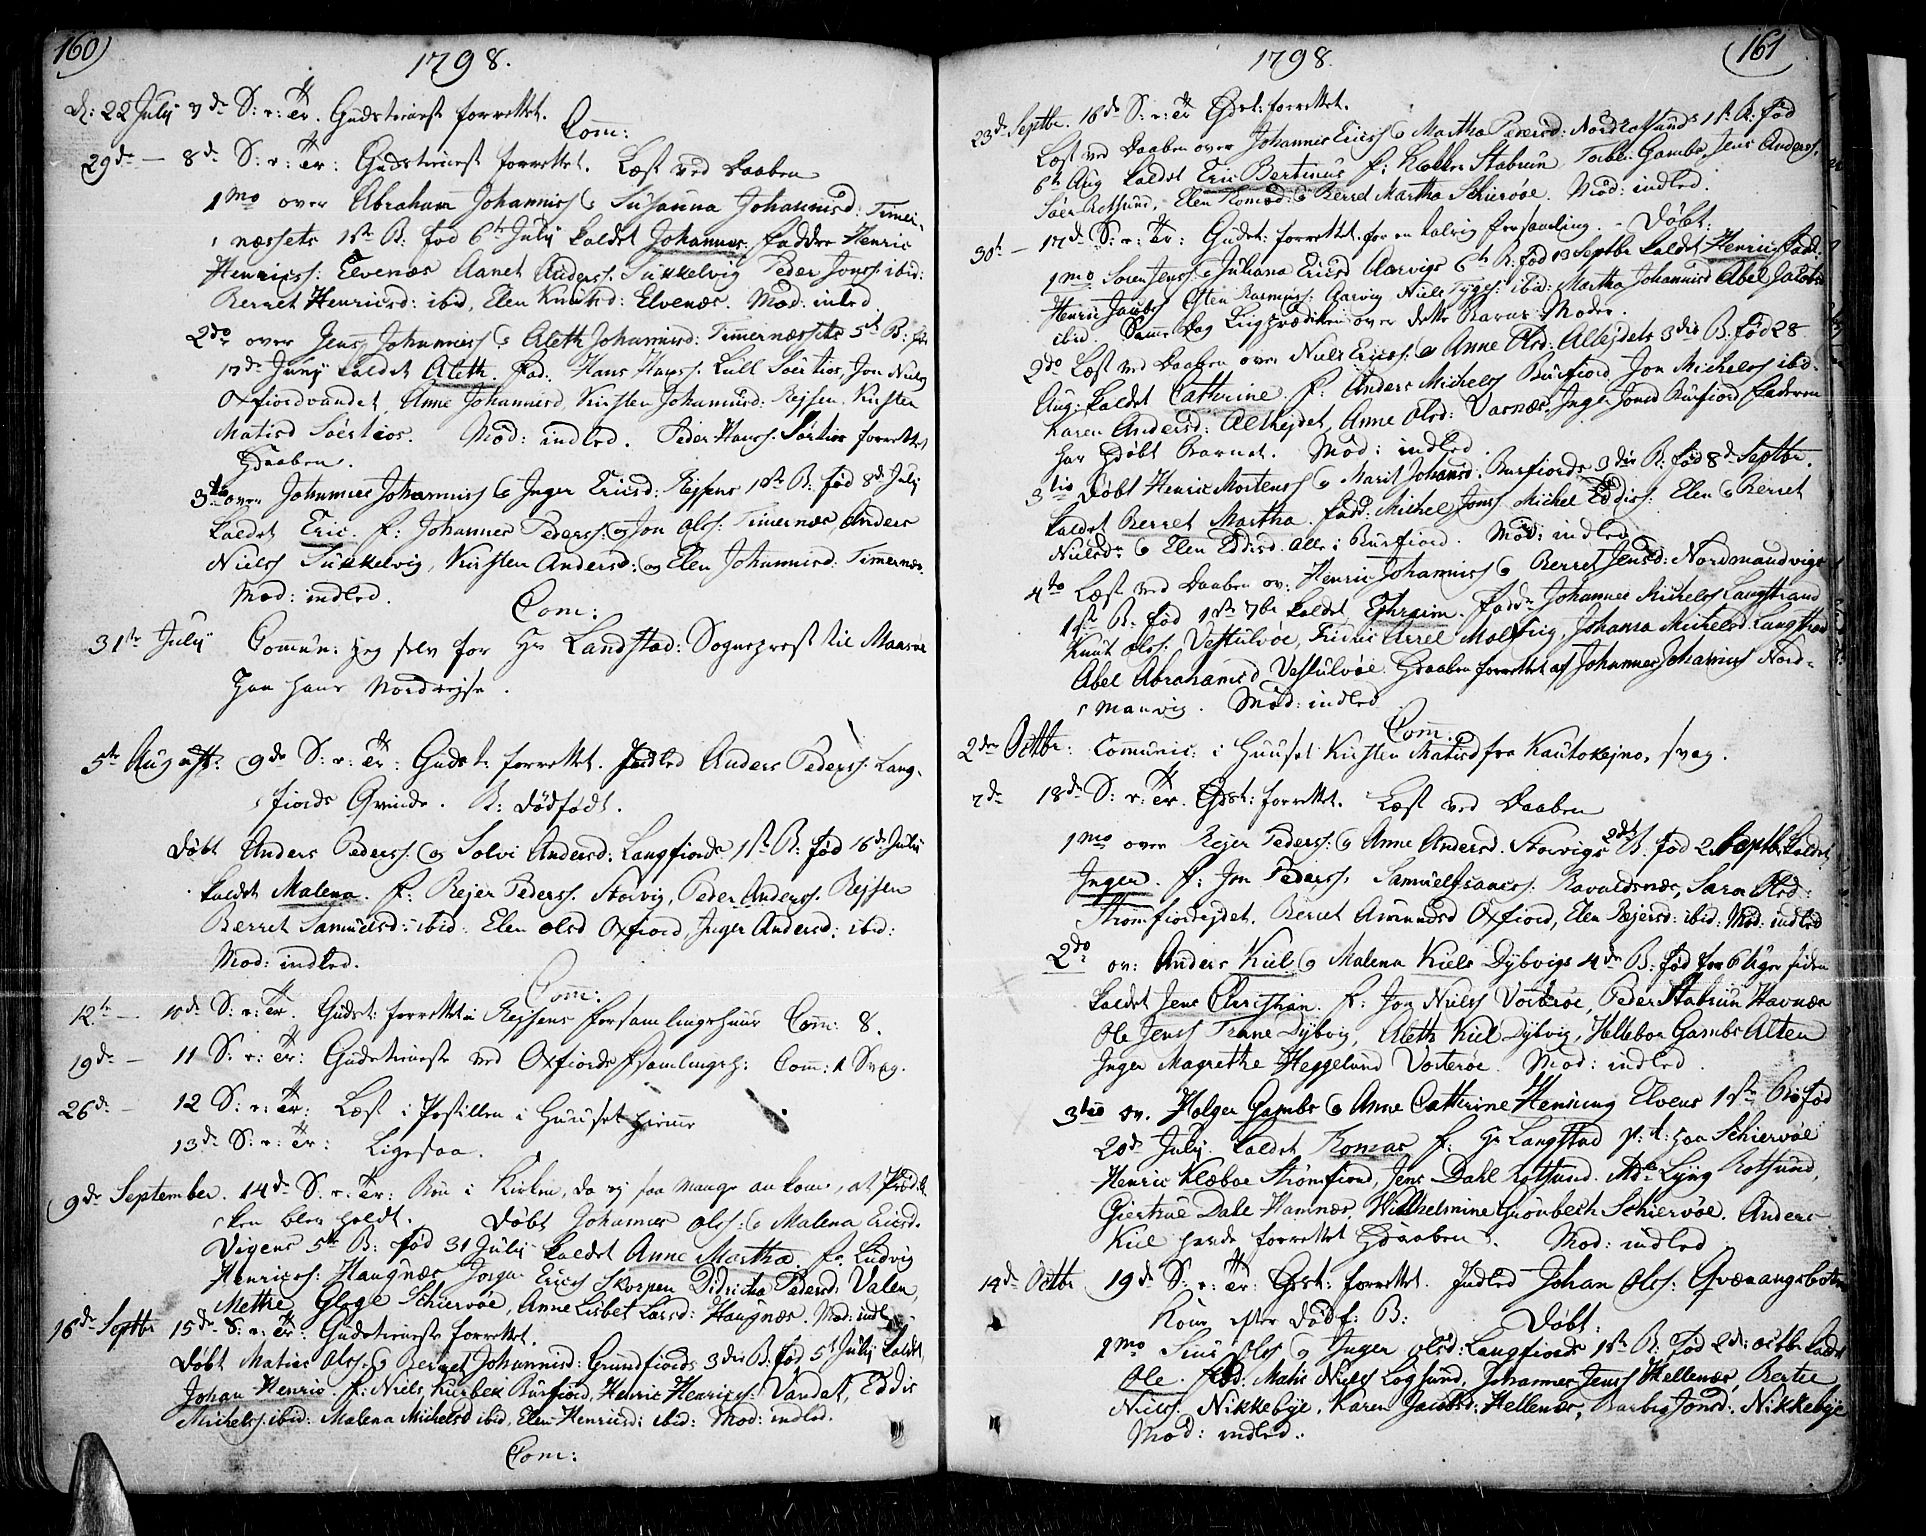 160)
1798.
d: 22 July 7de S: e: Tr. Gudstieneste forrettet.
Com:
29de — 8de S: e: Tr: Gudstieneste forrettet. Læst ved Daaben
1mo over Abraham Johanniss: og Susanna Johannisd: Timer-
næssets 1ste B: fød 6te July kaldet Johannes. Faddre Henric
Henricss: Elvenæs Aanet Anderss: Sukkelvig Peder Jonss: ibid:
Berret Henricsd: ibid, Elen Knutsd: Elvenæs. Mod: inled.
2do over Jens Johanniss: og Aleth Johannisd: Timernæssets 5te B: fød
July kaldet Aleth. Fad. Hans Hanss: Lull Sörtios, Jon Nielss
Oxfiordvandet, Anne Johannisd, Kirsten Johannisd: Rejsen, Kirsten
Matisd Sörtios. Mod: indled. Peder Hanss: Sörtios forrettet
Hdaaben.
3tio over Johannes Johanniss og Inger Ericsd: Rejsens 1ste B: fød 8de July
kaldet Eric. f: Johannes Pederss: og Jon Olss: Timernæs, Anders
Nielss Sukkelvig, Kirsten Andersd: og Elen Johannisd: Timernæs.
Mod: indled.
Com:
31te July Commun: jeg selv for Hr Landstad: Sogneprest til Maasøe
paa hans Nordrejse.
5te August: 9de S: e: Tr: Gudst: forrettet. Indled Anders Pederss: Lang-
fiords Qvinde. B: dödfödt.
Døbt Anders Pederss: og Solvi Andersd: Langfiords 11te B: fød 16de July
kaldet Malena. f: Rejer Pederss. Storvig, Peder Anderss. Rejsen
Berret Samuelsd: ibid: Elen Olsd Oxfiord, Inger Andersd: ibid:
Mod: indled.
Com:
12te — 10de S: e: Tr. Gudst: forrettet i Rejsens forsamlingshuus Com: 8.
19de — 11 S: e: Tr: Gudstieneste ved Oxfiords fsamlingsh: Com: 1 Svag.
26de — 12 S: e: Tr: Læst i Postillen i Huuset hiemme
13de S: e: Tr: Ligesaa.
9de September. 14de S: e: Tr: Bøn i Kirken, da ej saa mange ankom, at Prædik
ken blev holdt. Døbt Johannes Olss: og Malena Ericsd.
Vigens 5te B: fød 31 July kaldet Anne Martha. f: Ludvig
Henricss: Haugnæs Jørgen Ericss Skorpen Didricha Pedersd: Valen,
Mette Gløge Schiervöe, Anne Lisbet Larsd: Haugnæs. Mod: indl
16de Septbr 15de S: e: Tr: Gudstieneste forrettet.
Døbt Matias Olss: og Berret Johannisd: Grundfiords 3die B: fød 5te July kaldet
Johan Henric. f: Niels Kurbek Burfiord, Henric Henricss: Vandet, Eddis
Michelss: ibid: Malena Michelsd ibid, Elen Henricsd: ibid: Mod: indled.
Com:
161
1798.
23de Septbr. 16de S: e: Tr Gdst: forrettet.
Læst ved Daaben over Johannis Ericss og Martha Pedersd: Nordrotsunds 1ste B: fød
6te Aug kaldet Eric Bertinus f: Kokken Stabrun Tocbl: Gamba, Jens Anderss.
Söer Rotsund, Elen Tomasd: og Berret Martha Schiervöe. Mod: indled.
30te — 17de S: e: Tr: Gudst: forrettet for en talrig forsamling. — Døbt:
1mo Soren Jenss: og Juliana Ericsd Aarvigs 6te B: fød 13 Septbr kaldet Henric. fadd:
Henric Jacobs Esten Rasmuss: Aarvig Niels Tyges: ibid: Martha Johannisd Abel Jacobsd
ibid. Samme Dag Liigprædiken over dette Barns Moder.
2do Læst ved Daaben over Niels Ericss: og Anne Olsd: Alteidets 3die B: fød 28
Aug: kaldet Cathrine f: Anders Michelss Burfiord, Jon Michelss ibid.
Karen Andersd: Altejdet, Anne Olsd: Varnæs, Inger Jonsd Burfiord faderen
har hdøbt Barnet. Mod: indled.
3tio Døbt Henric Mortenss og Marit Johansd: Burfiords 3die B: fød 8de Septbr.
kaldet Berret Martha. fadd. Michel Jonss Michel Eddiss: Elen og Berret
Nielsdr: og Elen Eddisd: alle i Burfiord. Mod: indled
4to Læst ved Daaben ov: Henric Johanniss og Berret Jensd: Nordmandvigs
1ste B: fød 1ste 7br kaldet Ephraim. fadd: Johannes Michelss Langstrand
Knut Olss: Vestulvöe, Fridric Arrel Molfrig, Johanna Michelsd: Langstrand
Abel Abrahamsd Vestulvöe. Hdaaben forrettet af Johannes Johannis Nord-
manvig. Mod: indled
Com:
2den Octbr: Communic: i Huuset Kirsten Matisd fra Kautokejno, svag.
7de 18de S: e: Tr. Gdst: forrettet. Læst ved Daaben
1mo over Rejer Pederss: og Anne Andersd. Storvigs 2det B. fød 2 Septbr kaldet
Inger. f: Jon Pederss, Samuel Isaacss: Ravaldsnæs, Sara Olsd.
Strømfiordejdet. Berret Amundsd Oxfiord, Elen Rejersd: ibid: Mod: indled
2do ov: Anders Kiel og Malena Kiels Dybvigs 4de B: fød for 6 Uger siden
kaldet Jens Christian. f: Jon Nielss Vorterøe, Peder Stabrun Havnæs
Ole Jenss Trane Dybvig, Aleth Kiel Dybvig, Helleboe Gambs Alten
Inger Magrethe Heggelund Vorterøe. Mod: indled.
3tio ov. Holger Gambs og Anne Cathrine Hensing Elvens 1ste B: fød
20de July kaldet Thomas f: Hr Langstad p: t: paa Schiervöe
Henric Klæboe Strömfiord, Jens Dahl Rotsund. Md: Lyng Rotsund,
Giertrue Dahl Hamnæs, Wilhelmine Grönbech Schiervöe. Anders
Kiel havde forrettet Hdaaben. Mod: indled
14de Octbr 19de S: e: Tr: Gdst: forrettet. Indled Johan Olss: Qvænangsbotns
Kone efter dødf: B: Døbt:
1mo Siur Olss og Inger Olsd: Langfiords 1ste B: fød 2de: octbr kaldet
Ole. Fad. Matis Nielss Logsund, Johannes Jenss Hellenæs, Bertel
Nielss. Nikkebye, Karen Jacobsd: Hellenæs, Barbro Jonsd. Nikkebye
Mod: indled.